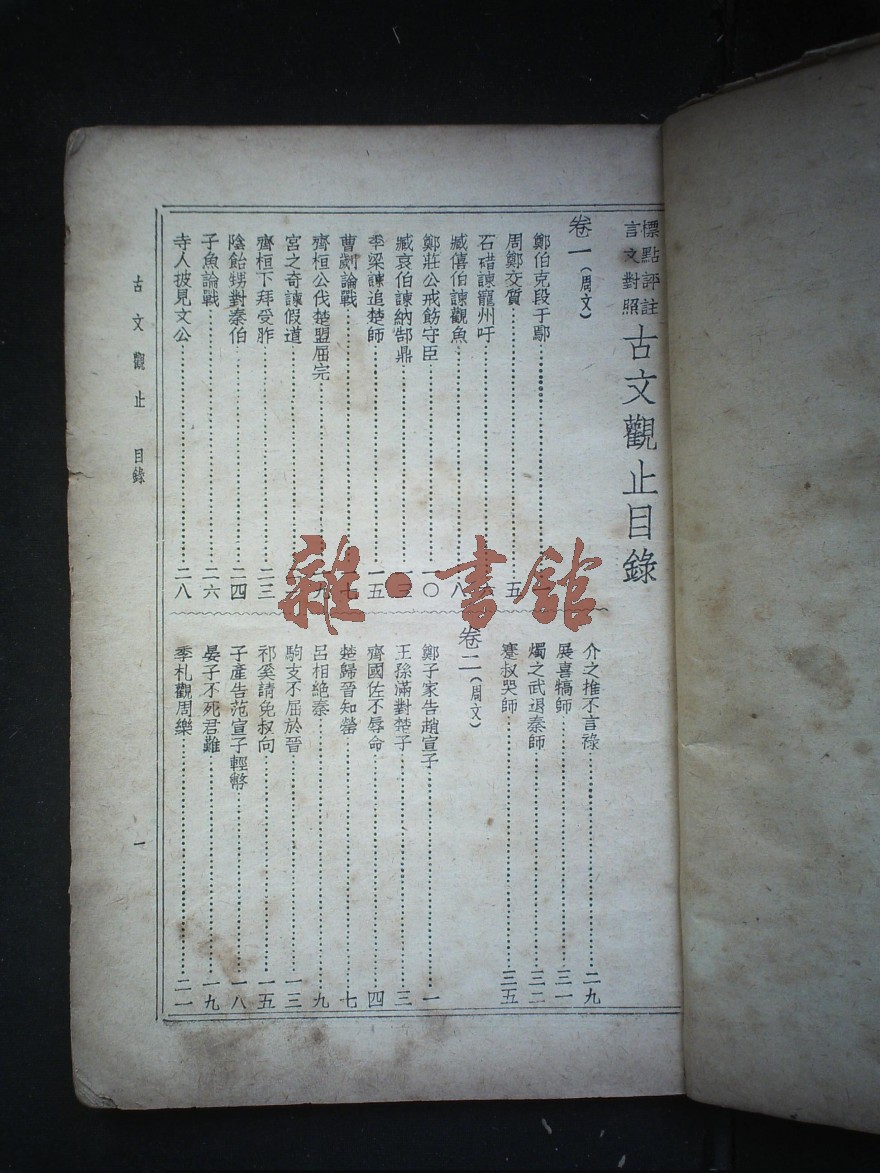 標點評註
言文對照
古文觀止目錄
卷一(周文)
鄭伯克段于鄢
周鄭交質 五
石碏諫寵州吁
臧僖伯諫觀魚 八
鄭莊公戒飭守臣 一〇
臧哀伯諫納郜鼎 一三
季梁諫追楚師 一五
曹劌論戰 一七
齊桓公伐楚盟屈完 一九
宮之奇諫假道
齊桓下拜受胙 二三
陰飴甥對秦伯 二四
子魚論戰 二六
寺人披見文公 二八
介之推不言祿 二九
展喜犒師 三一
燭之武退秦師 三二
蹇叔哭師 三五
卷二(周文)
鄭子家告趙宣子 一
王孫滿對楚子 三
齊國佐不辱命 四
楚歸晉知罃 七
呂相絶秦 九
駒支不屈於晉 一三
祁奚請免叔向 一五
子產告范宣子輕幣 一八
晏子不死君難 一九
季札觀周樂 二一
古文觀止 目錄 一
雜·書館